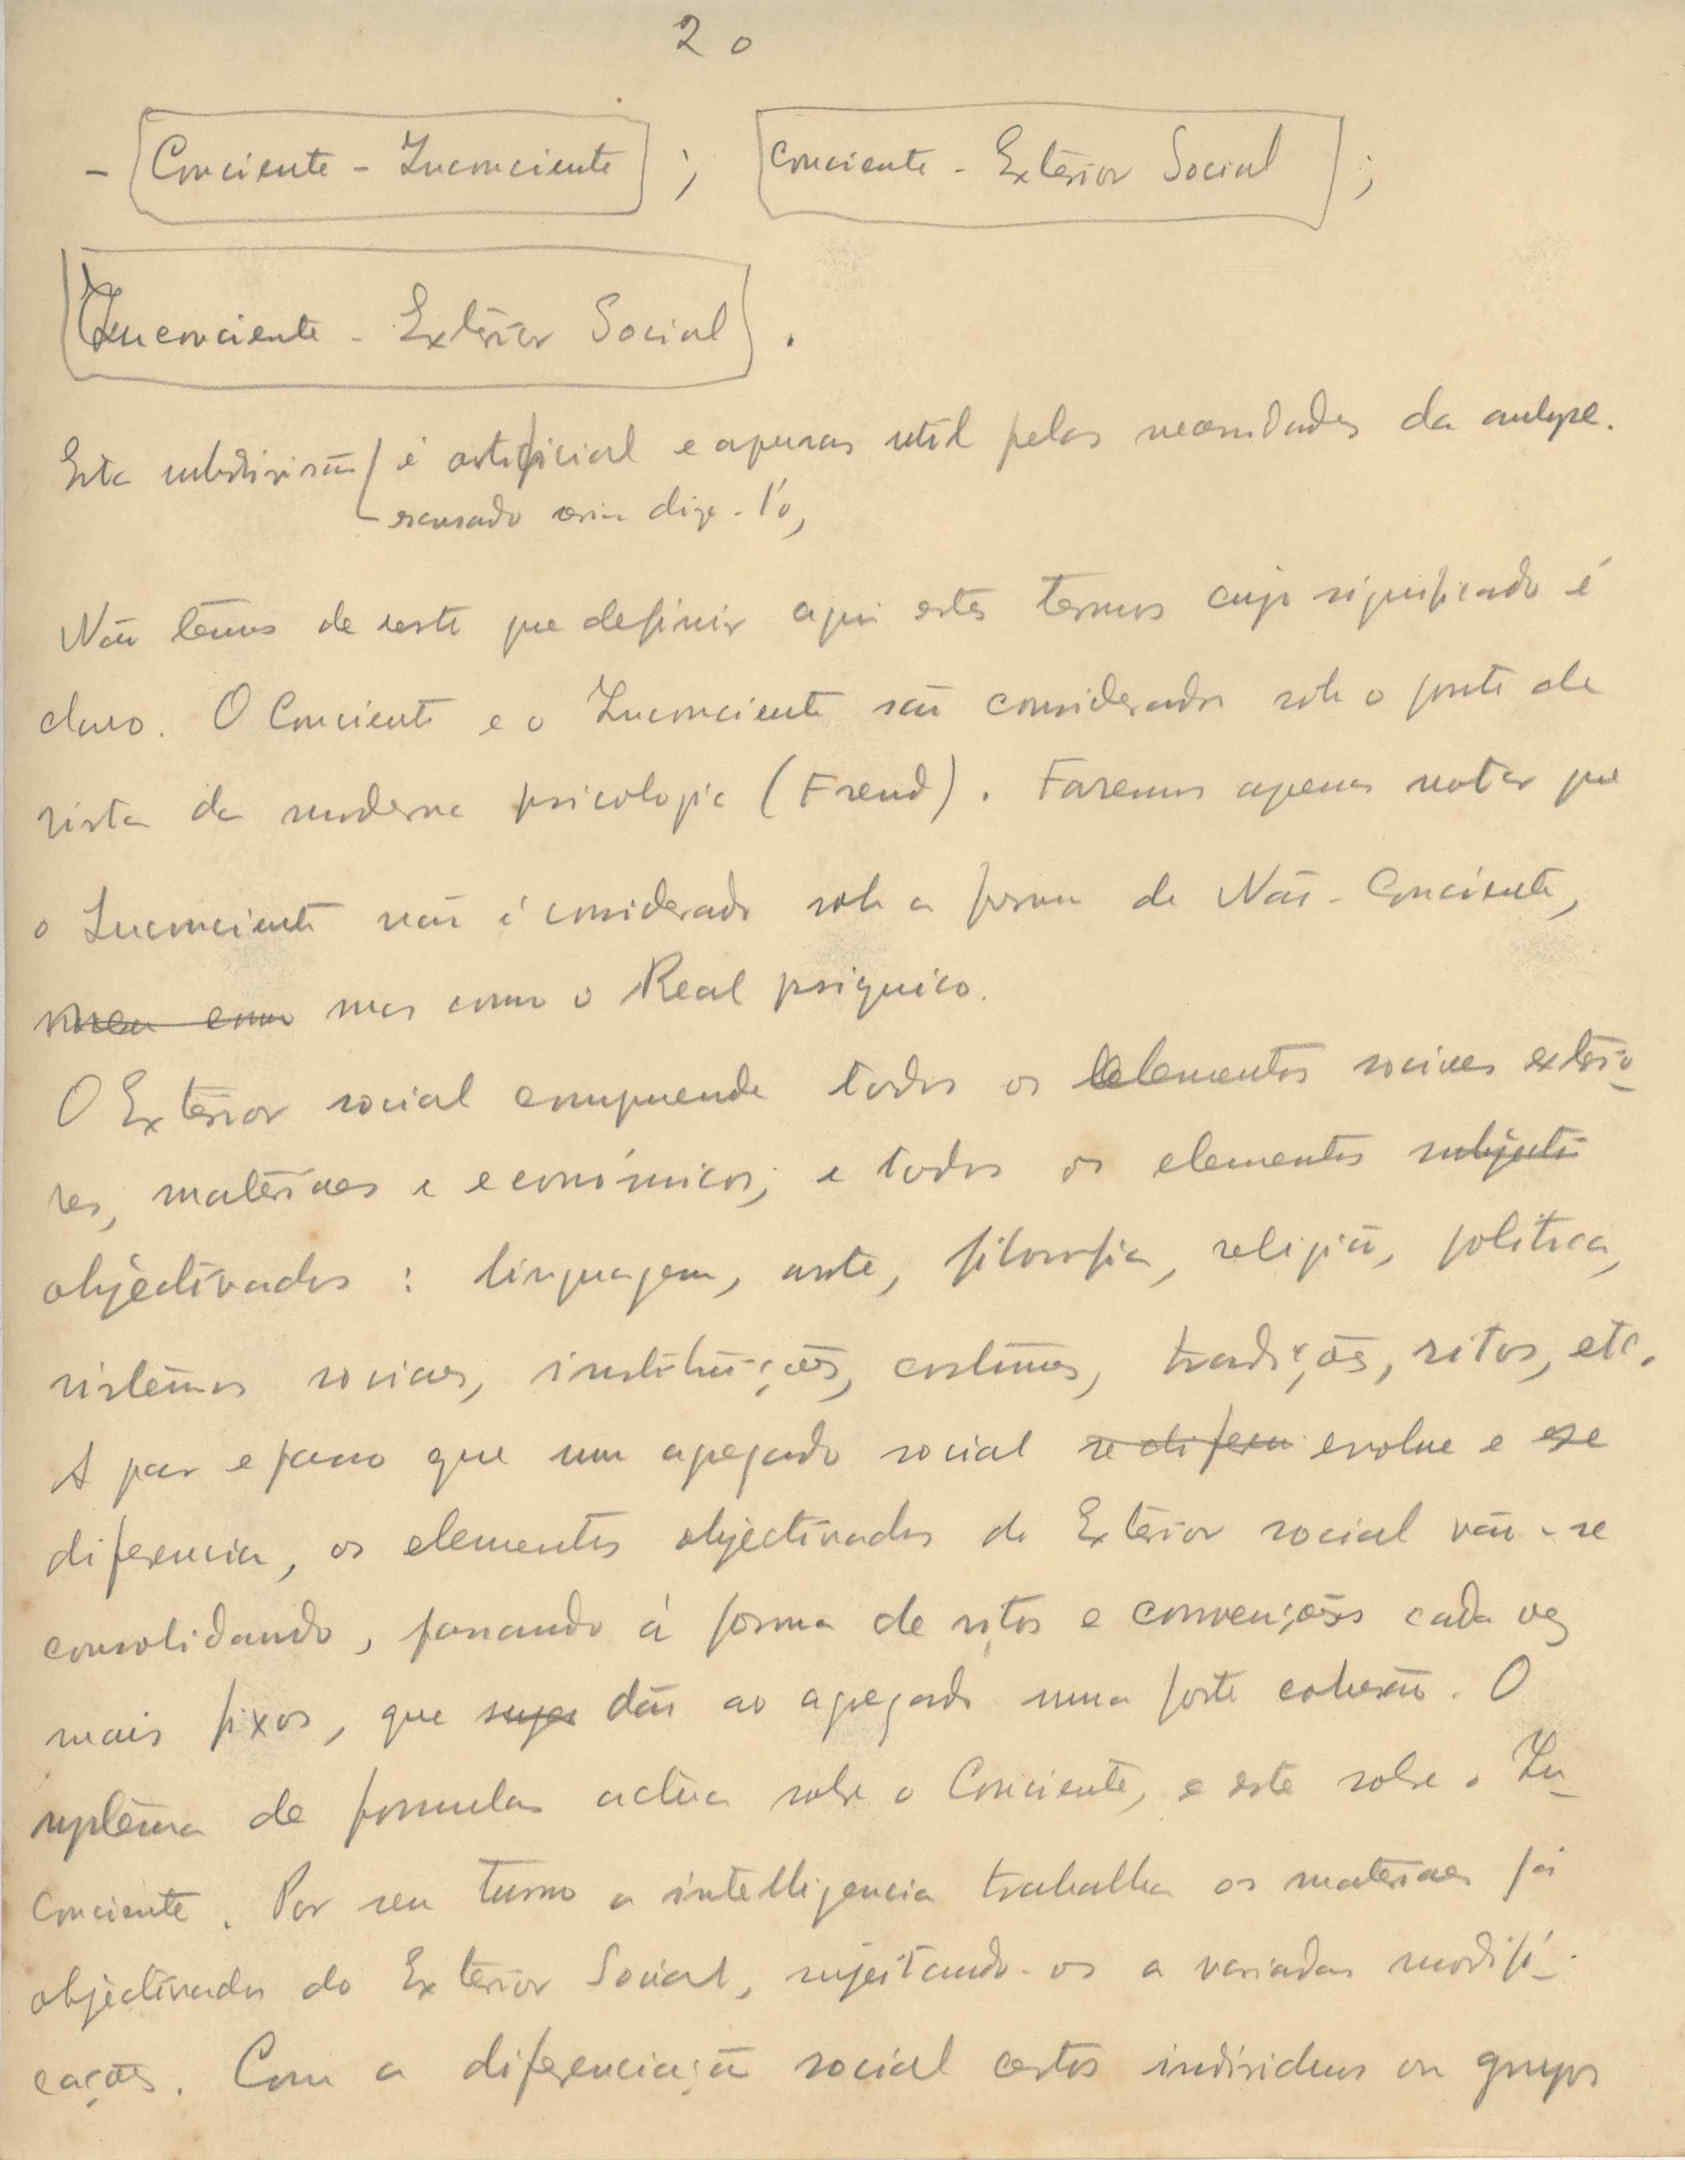 20
- Conciente - Inconciente ; Conciente - Exterior Social ;
Inconciente - Exterior Social .
Esta subdivisão é artificial e apenas util pelas necessidades da analyse.
escusado seria dize-l'o,
Não temos de resto que definir aqui estes termos cujo significado é
claro. O Conciente e o Inconciente são considerados sob o ponto de
vista da moderna psicologia (Freud). Faremos apenas notar que
o Inconciente não é considerado sob a forma de Não-Conciente,
mas como o Real psiquico.
O Exterior social compreende todos os elementos sociaes exterio-
res, materiaes e económicos; e todos os elementos subjecti
objectivados : linguagem, arte, filosofia, religião, politica,
sistemas sociaes, instituições, costumes, tradições, ritos, etc.
A par e passo que um agregado social se difere evolue e se
diferencia, os elementos objectivados do Exterior social vão-se
consolidando, passando á forma de ritos e convenções cada vez
mais fixos, que dão ao agregado uma forte cohesão. O
systema de formulas actua sobre o Conciente, e este sobre o In-
conciente. Por seu turno a intelligencia trabalha os materiaes já
objectivados do Exterior Social, sujeitando-os a variadas modifi-
cações. Com a diferenciação social certos individuos ou grupos